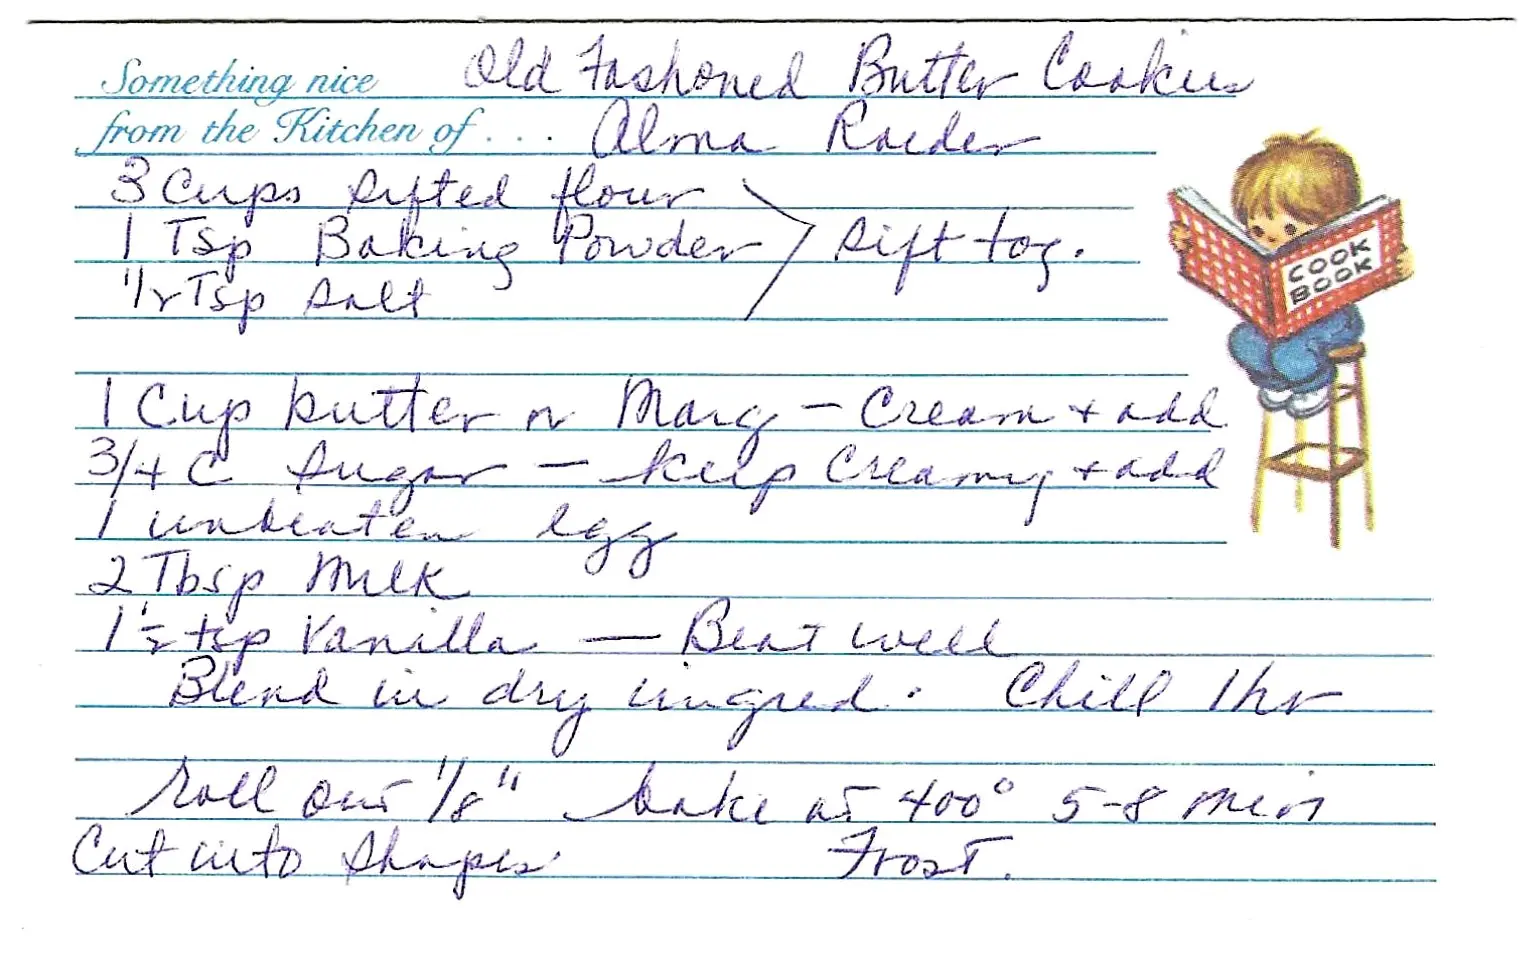 Something nice Old Fashoned Butter Cookies
from the Kitchen of . . . Alma Raeder
3 Cups sifted flour
1 Tsp Baking Powder sift tog.
1/2 Tsp salt
1 Cup butter or Marg — Cream + add
3/4 C sugar — keep creamy + add
1 unbeaten egg
2 Tbsp Milk
1 1/2 tsp Vanilla — Beat well
Blend in dry ingred. Chill 1hr
Roll out 1/8" bake at 400° 5-8 min
Cut into shapes Frost.
COOK
BOOK